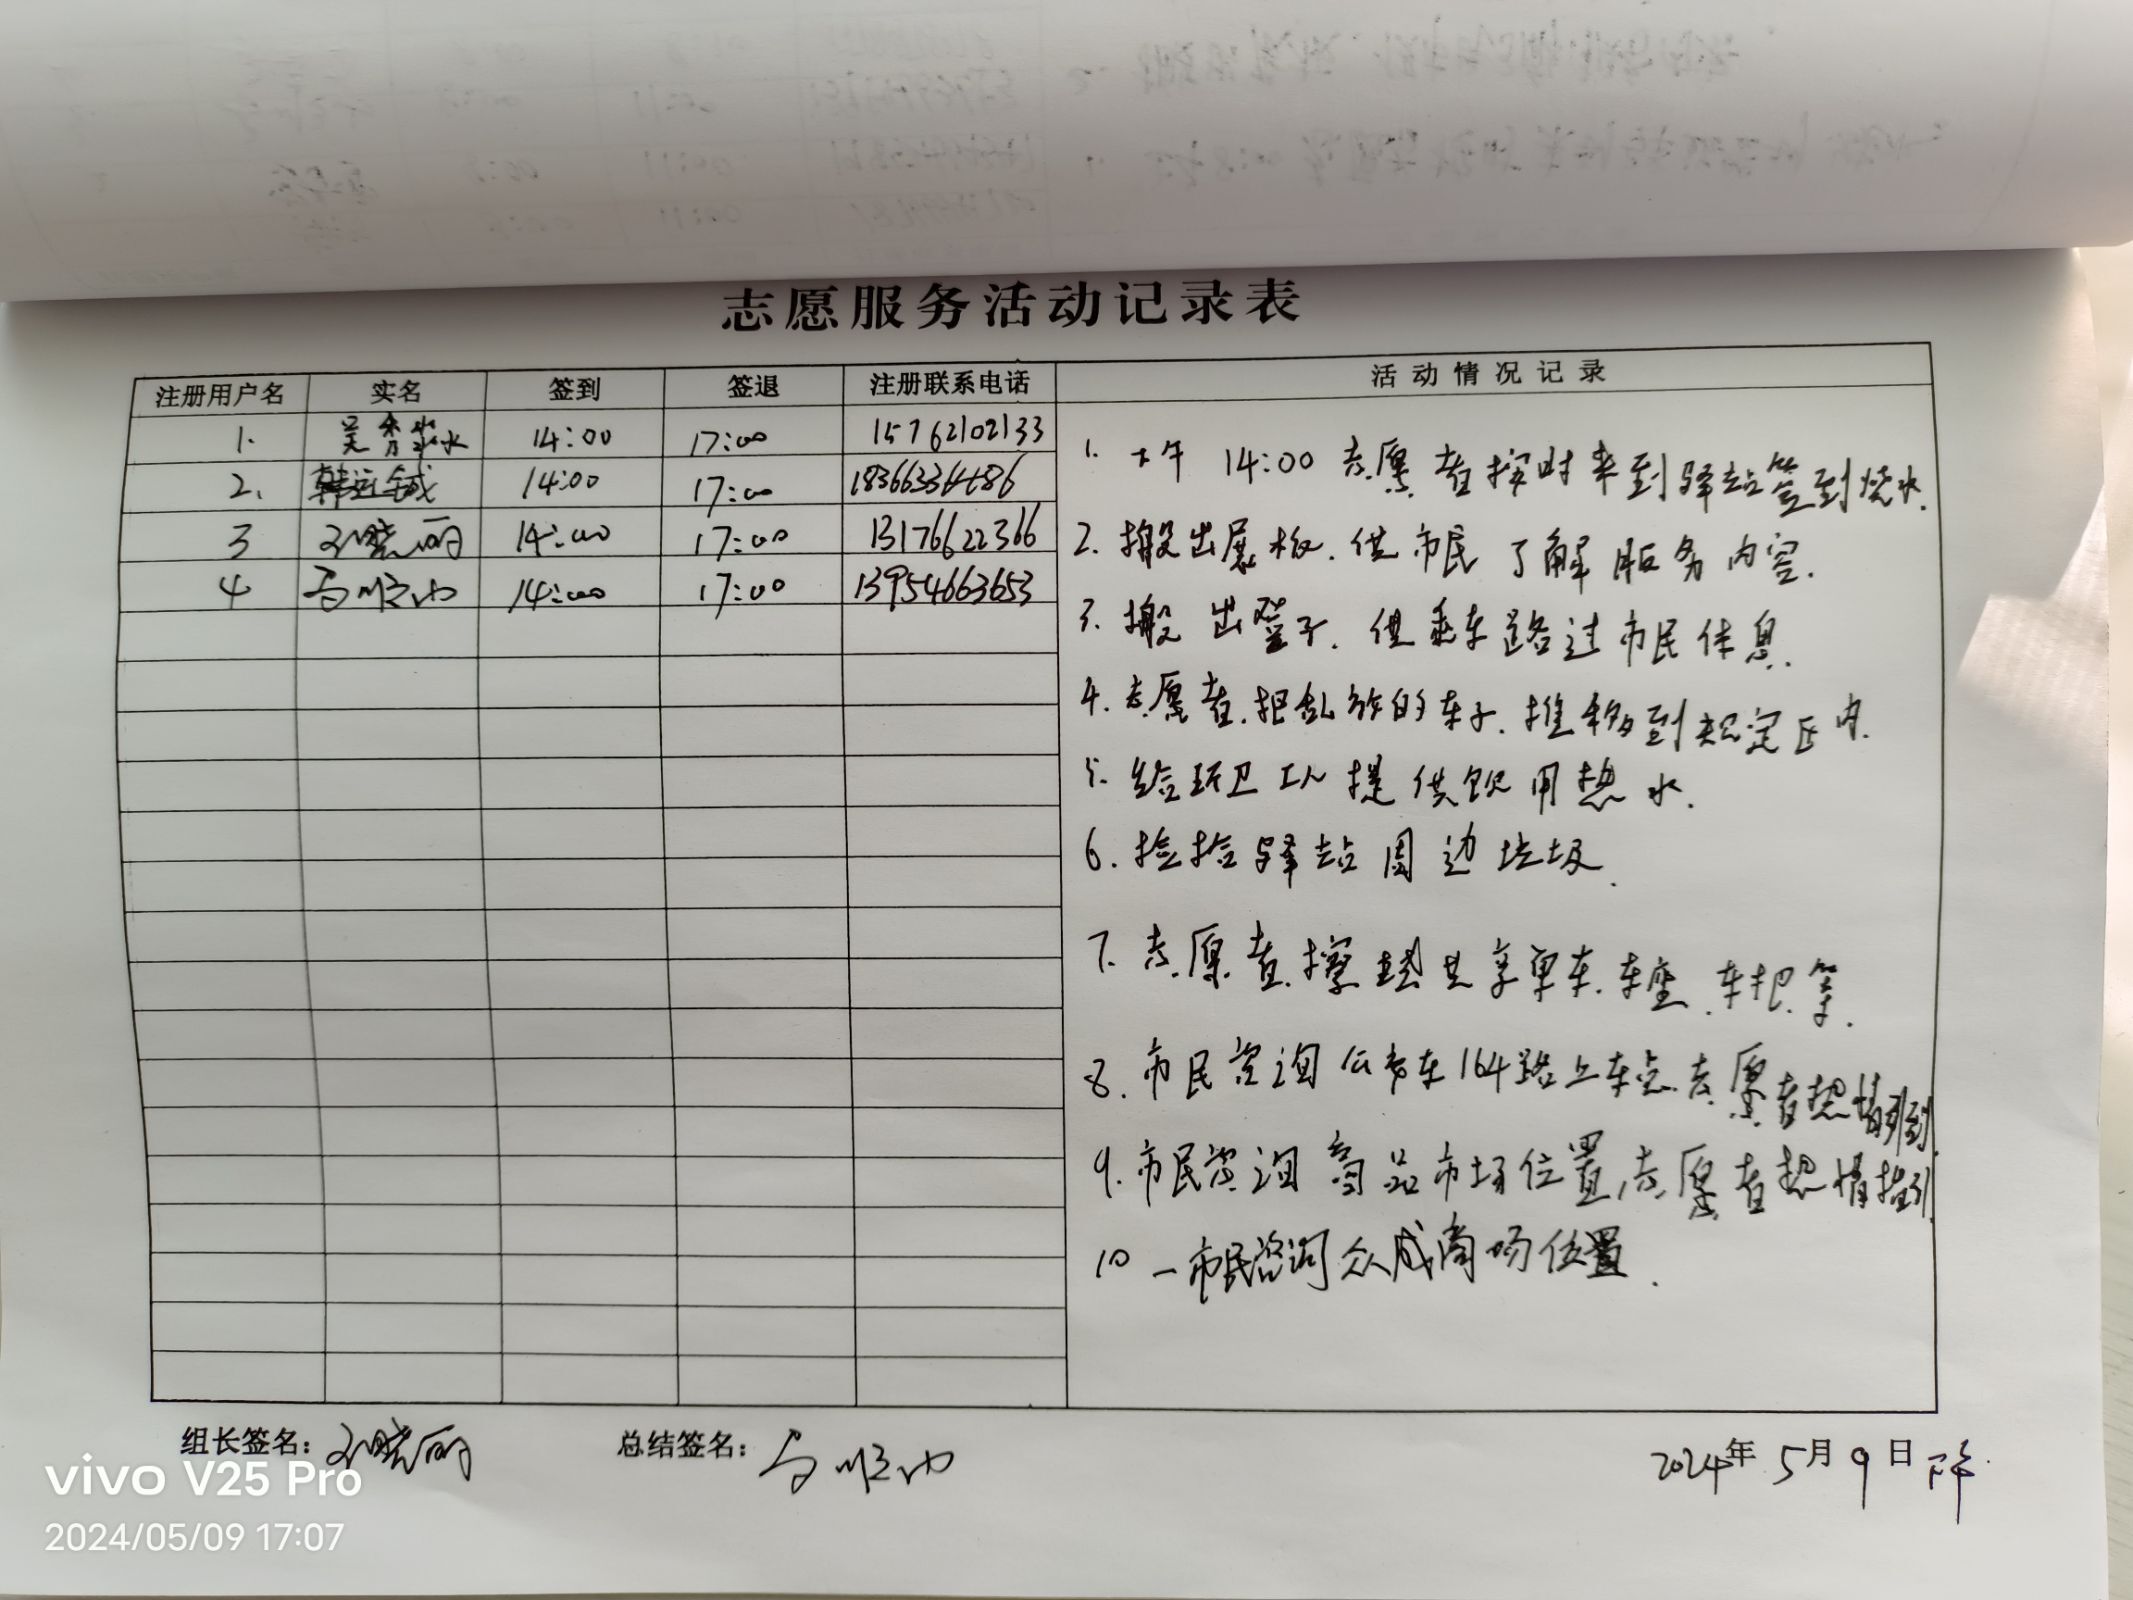 志愿服务活动记录表
注册用户名 实名 签到 签退 注册联系电话 活动情况记录
1. 14:00 17:00 15762102133
2. 韩运铖 14:00 17:00
3 王晓丽 14:00 17:00 13176622366
4 马顺 14:00 17:00 13954663653
1. 下午 14:00 志愿者按时来到驿站签到烧水.
2. 搬出展板.供市民了解服务内容.
3. 搬出凳子.供乘车路过市民休息.
4. 志愿者.把乱放的车子.推移到规定区内.
5. 给环卫工人提供饮用热水.
6. 捡拾驿站周边垃圾.
7. 志愿者.擦共享单车.车座.车把.等.
8. 市民咨询公交车164路上车点.志愿者热情
9. 市民咨询商品市场位置,志愿者热情指引.
10 一市民咨询众成商场位置.
组长签名: 王晓丽 总结签名: 马顺 2024年5月9日下午
vivo V25 Pro
2024/05/09 17:07